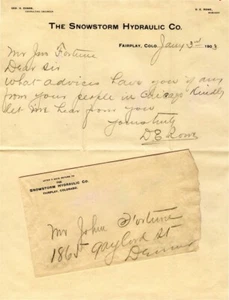 THE SNOWSTORM HYDRAULIC CO.
FAIRPLAY, COLO. Jany 3rd 190
Mr Jno Fortune
Dear Sir
What advices have you if any
from your people in Chicago Kindly
let me hear from you
Yours truly
THE SNOWSTORM HYDRAULIC CO.
FAIRPLAY, COLORADO.
Mr John Fortune
1865 Gaylord St
Denver